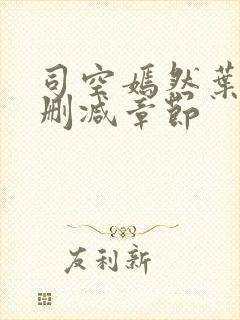 司空嫣然葉
刪减章節
友利新